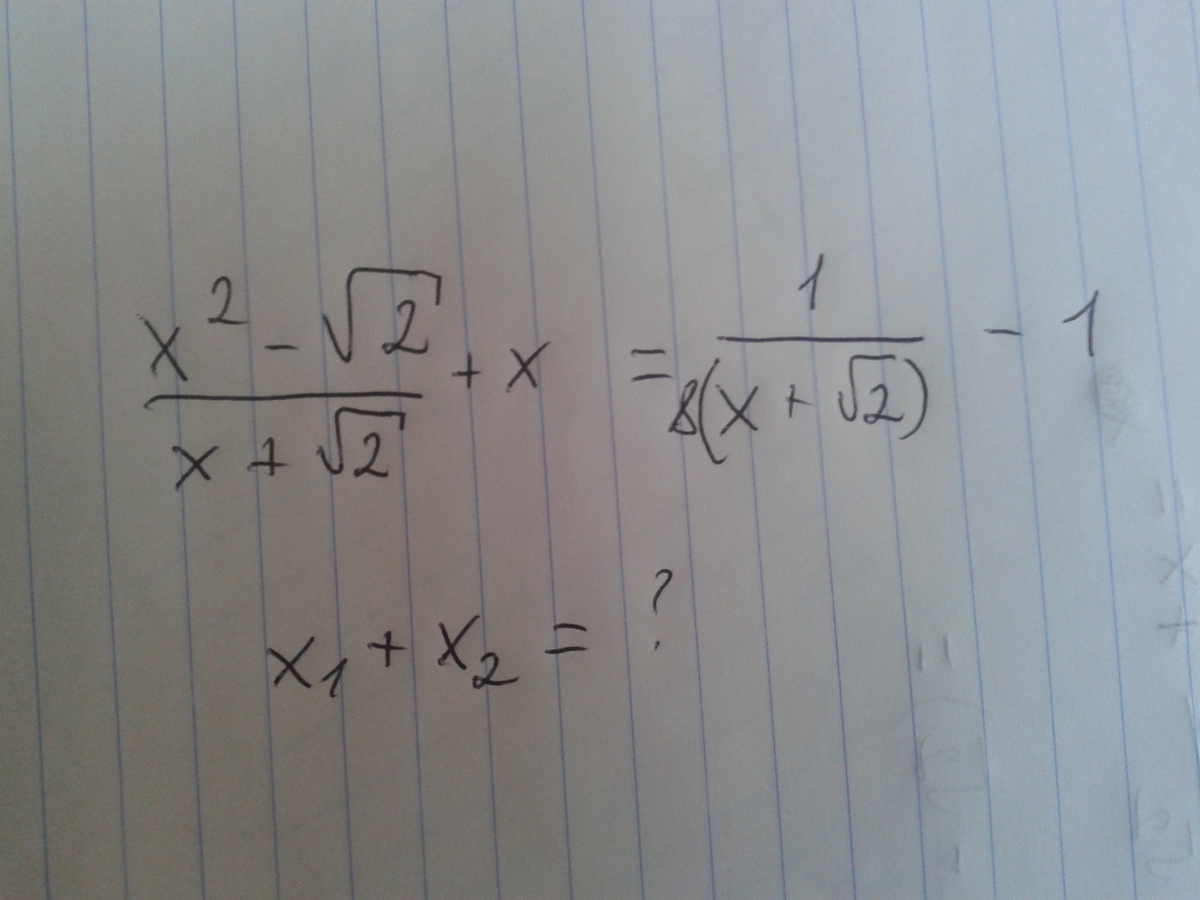 x² - √2 / x + √2 + x = 1 / 8(x + √2) - 1
x₁ + x₂ = ?